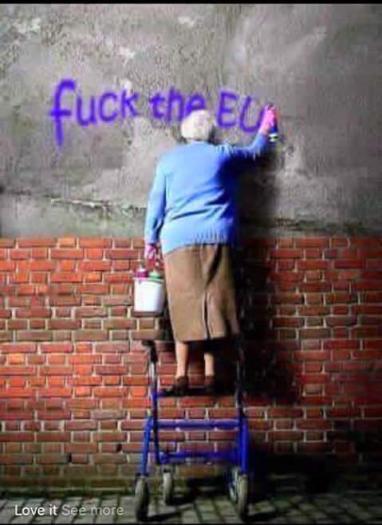 fuck the EU
Love it See more